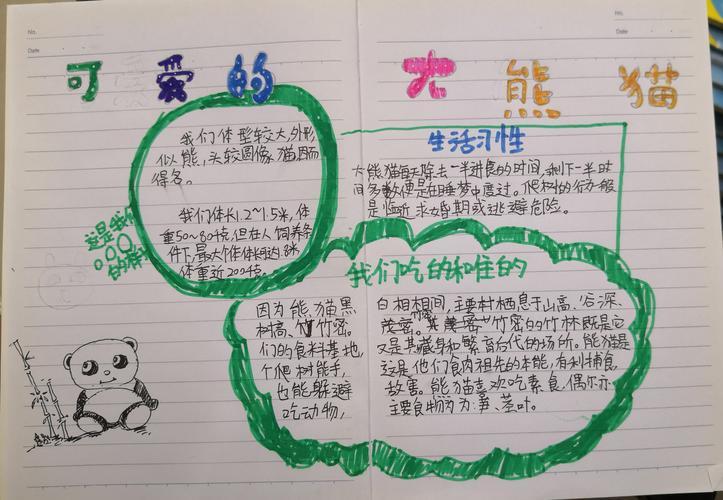 No.
Date
No.
Date
可爱的大熊猫
我们体型较大,外形
似熊,头较圆像猫因而
得名。
我们体长1.2~1.5米,体
重50~80千克,但在人饲养条
件下,最大个体体长可达1.8米,
体重近200千克。
这是我们
的样
生活习性
大熊猫每天除去一半进食的时间,剩下一半时
间多数便是在睡梦中度过。爬树的行为一般
是临近求婚期或逃避危险。
我们吃的和住的
因为熊猫黑白相相间,主要村栖息于山高、谷深、
树高、竹密。其茂密竹密的竹林既是它
们的食料基地,又是其藏身和繁育后代的场所。熊猫是
个爬树能手,这是他们食肉祖先的本能,有利捕食,
也能躲避敌害。熊猫喜欢吃素食,偶尔亦
吃动物,主要食物为:笋、茎叶。